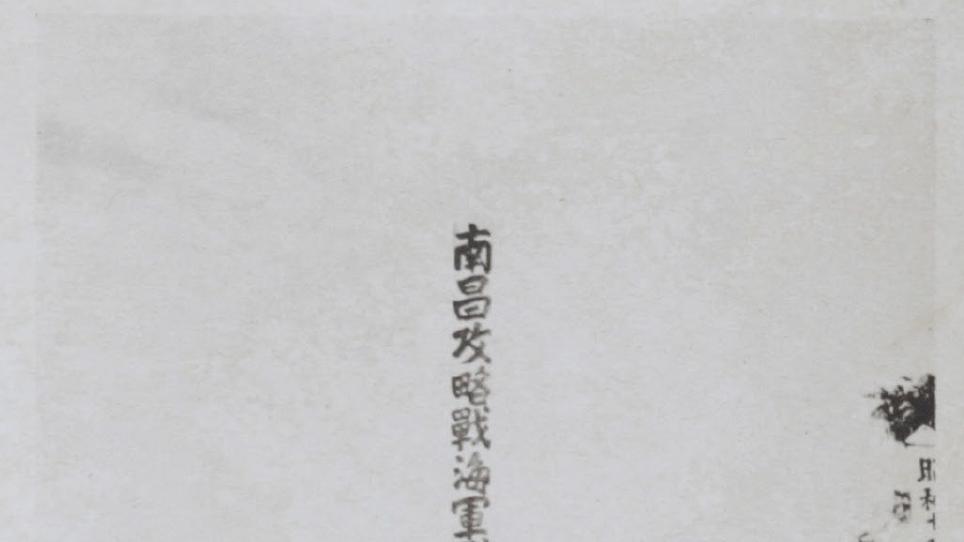 昭和十
南昌攻略戰海軍